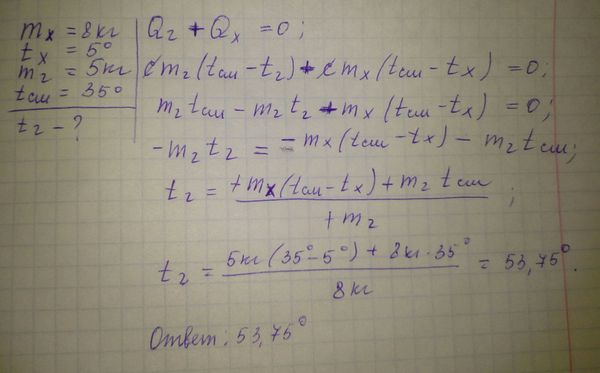 mₓ = 8кг
tₓ = 5°
m₂ = 5кг
tсм = 35°
t₂ - ?
Q₂ + Qₓ = 0;
cm₂(tсм - t₂) + cmₓ(tсм - tₓ) = 0;
m₂tсм - m₂t₂ + mₓ(tсм - tₓ) = 0;
-m₂t₂ = -mₓ(tсм - tₓ) - m₂tсм;
t₂ = +mₓ(tсм - tₓ) + m₂tсм / +m₂ ;
t₂ = 5кг(35° - 5°) + 8кг·35° / 8кг = 53,75°.
Ответ: 53,75°